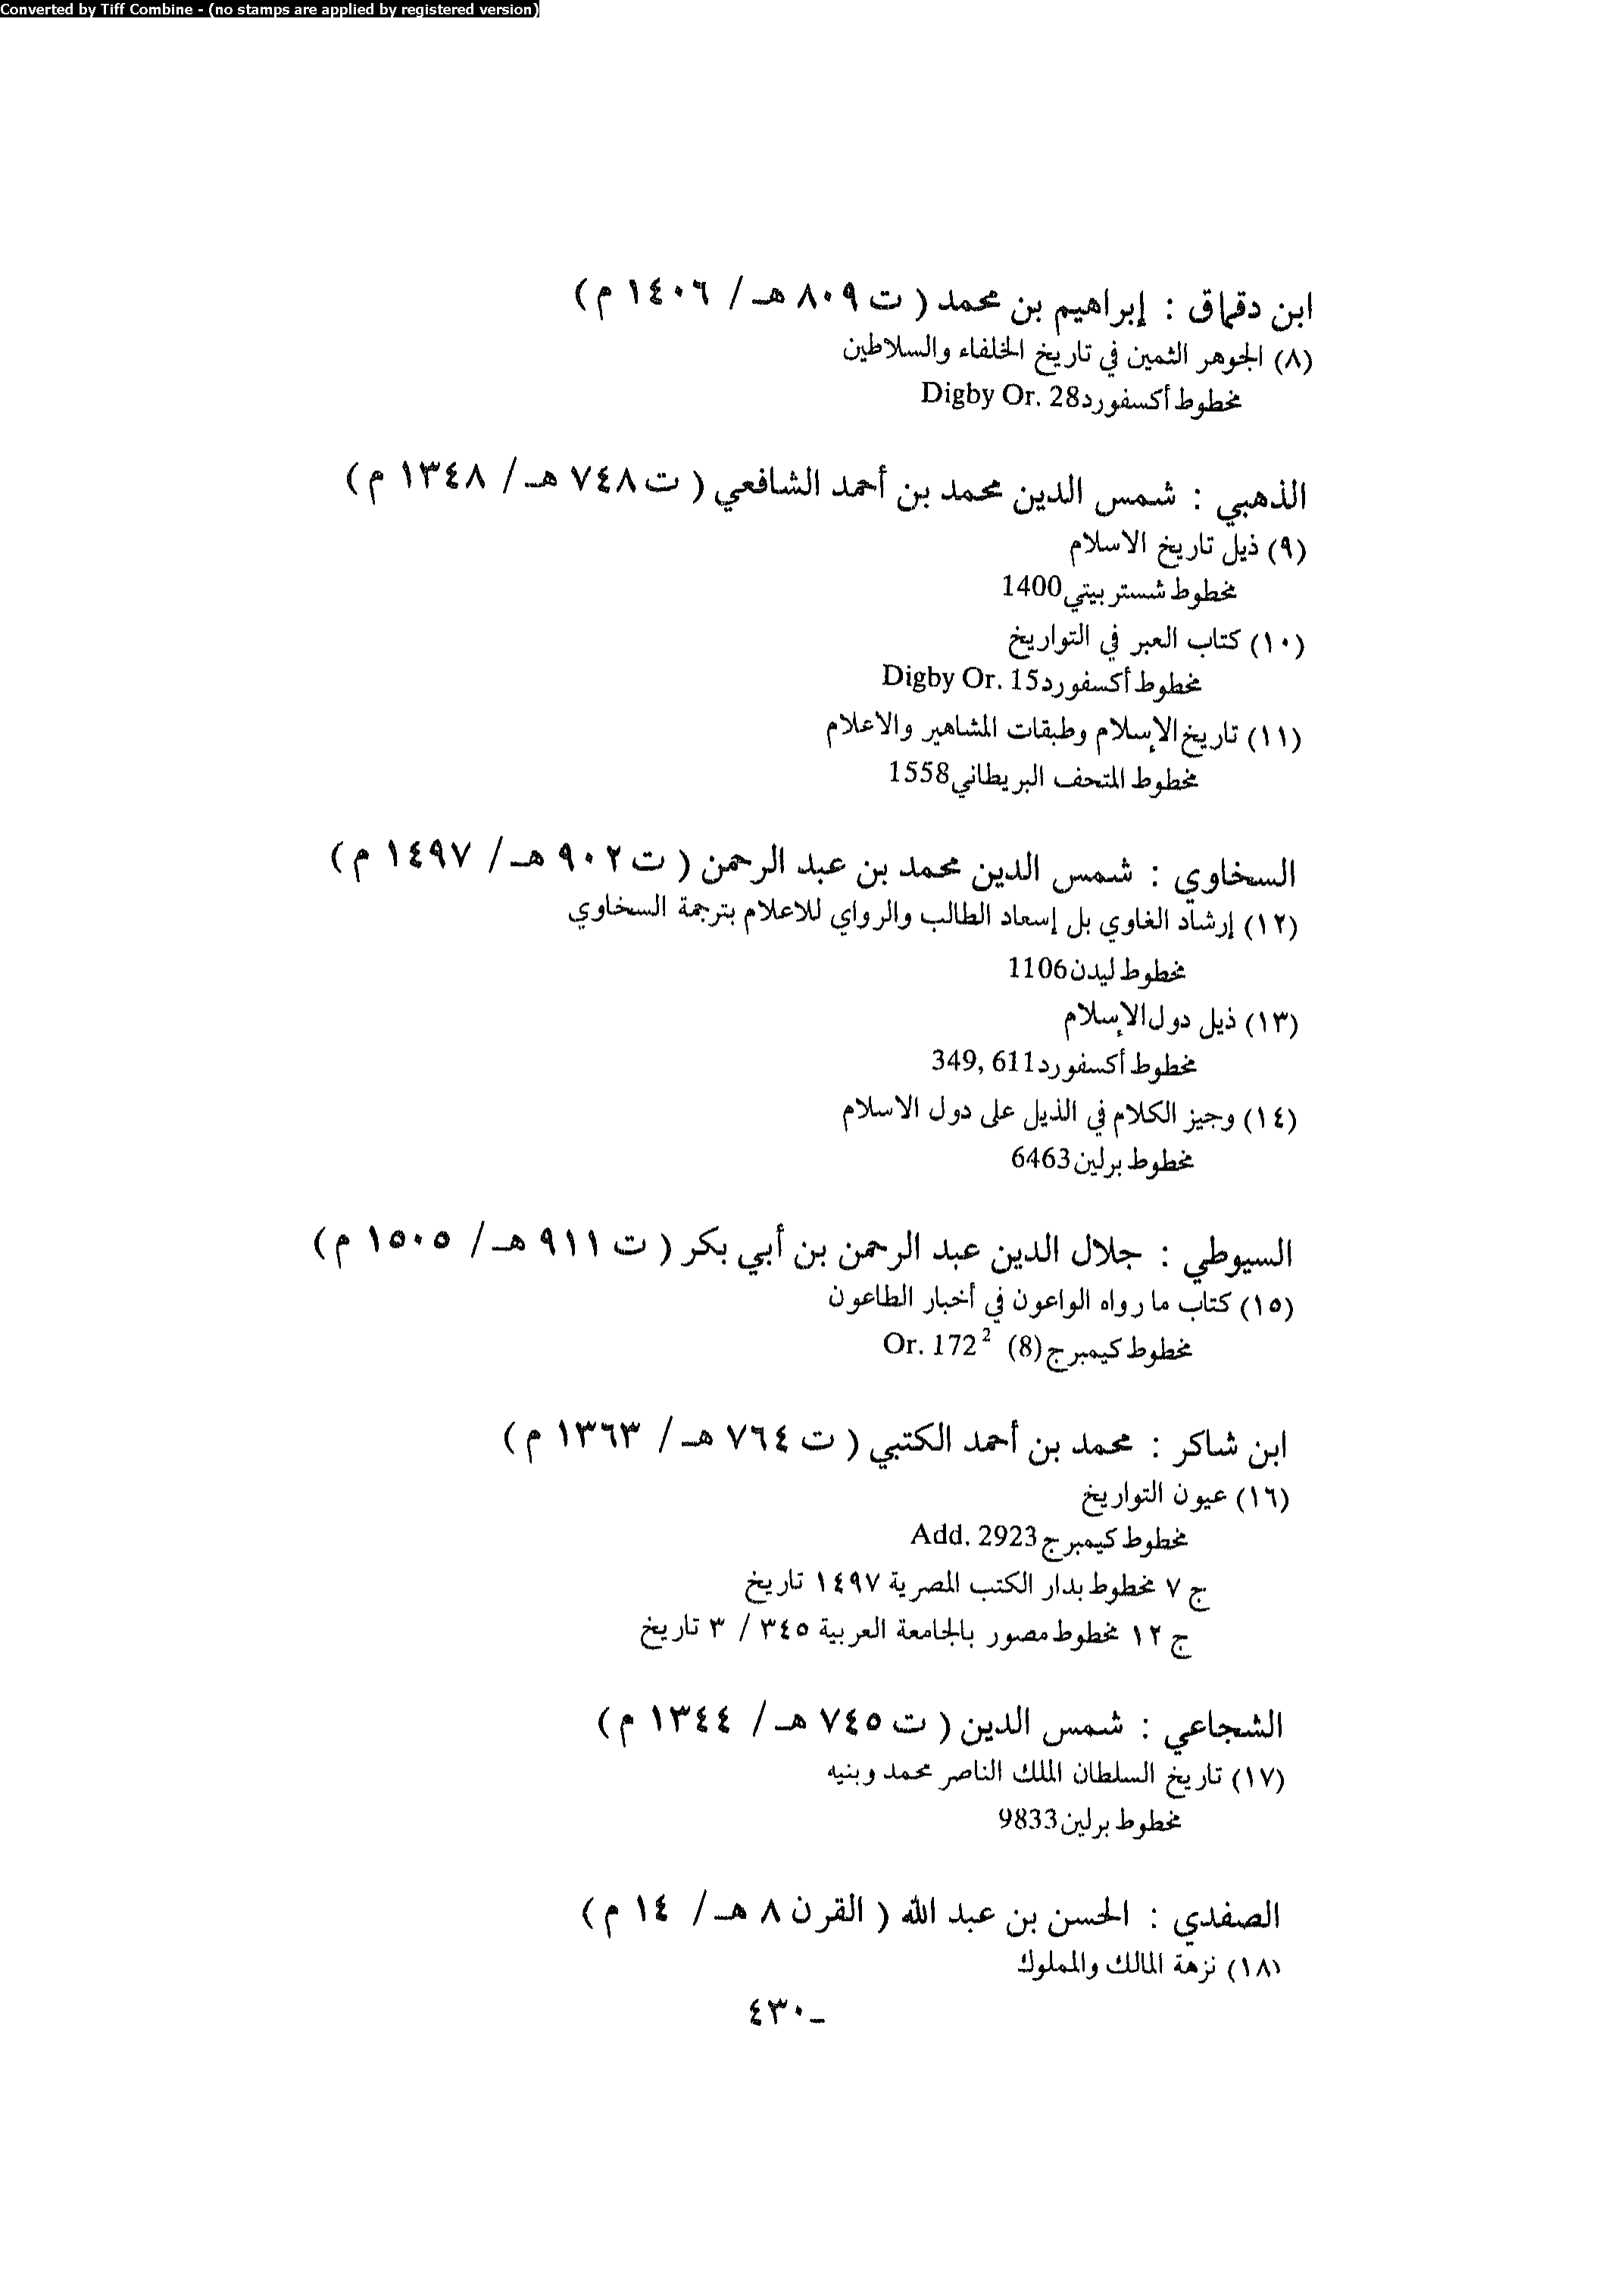 Converted by Tiff Combine - (no stamps are applied by registered version)
ابن دقماق : إبراهيم بن محمد ( ت ٨٠٩ هـ / ١٤٠٦ م )
(٨) الجوهر الثمين في تاريخ الخلفاء والسلاطين
مخطوط أكسفورد Digby Or. 28
الذهبي : شمس الدين محمد بن أحمد الشافعي ( ت ٧٤٨ هـ / ١٣٤٨ م )
(٩) ذيل تاريخ الاسلام
مخطوط شستر بيتي 1400
(١٠) كتاب العبر في التواريخ
مخطوط أكسفورد Digby Or. 15
(١١) تاريخ الإسلام وطبقات المشاهير والاعلام
مخطوط المتحف البريطاني 1558
السخاوي : شمس الدين محمد بن عبد الرحمن ( ت ٩٠٢ هـ / ١٤٩٧ م )
(١٢) إرشاد الغاوي بل إسعاد الطالب والرواي للاعلام بترجمة السخاوي
مخطوط ليدن 1106
(١٣) ذيل دول الإسلام
مخطوط أكسفورد 349, 611
(١٤) وجيز الكلام في الذيل على دول الاسلام
مخطوط برلين 6463
السيوطي : جلال الدين عبد الرحمن بن أبي بكر ( ت ٩١١ هـ / ١٥٠٥ م )
(١٥) كتاب ما رواه الواعون في أخبار الطاعون
مخطوط كيمبرج Or. 172² (8)
ابن شاكر : محمد بن أحمد الكتبي ( ت ٧٦٤ هـ / ١٣٦٣ م )
(١٦) عيون التواريخ
مخطوط كيمبرج Add. 2923
ج ٧ مخطوط بدار الكتب المصرية ١٤٩٧ تاريخ
ج ١٢ مخطوط مصور بالجامعة العربية ٣٤٥ / ٣ تاريخ
الشجاعي : شمس الدين ( ت ٧٤٥ هـ / ١٣٤٤ م )
(١٧) تاريخ السلطان الملك الناصر محمد وبنيه
مخطوط برلين 9833
الصفدي : الحسن بن عبد الله ( القرن ٨ هـ / ١٤ م )
(١٨) نزهة المالك والمملوك
ـ ٤٣٠